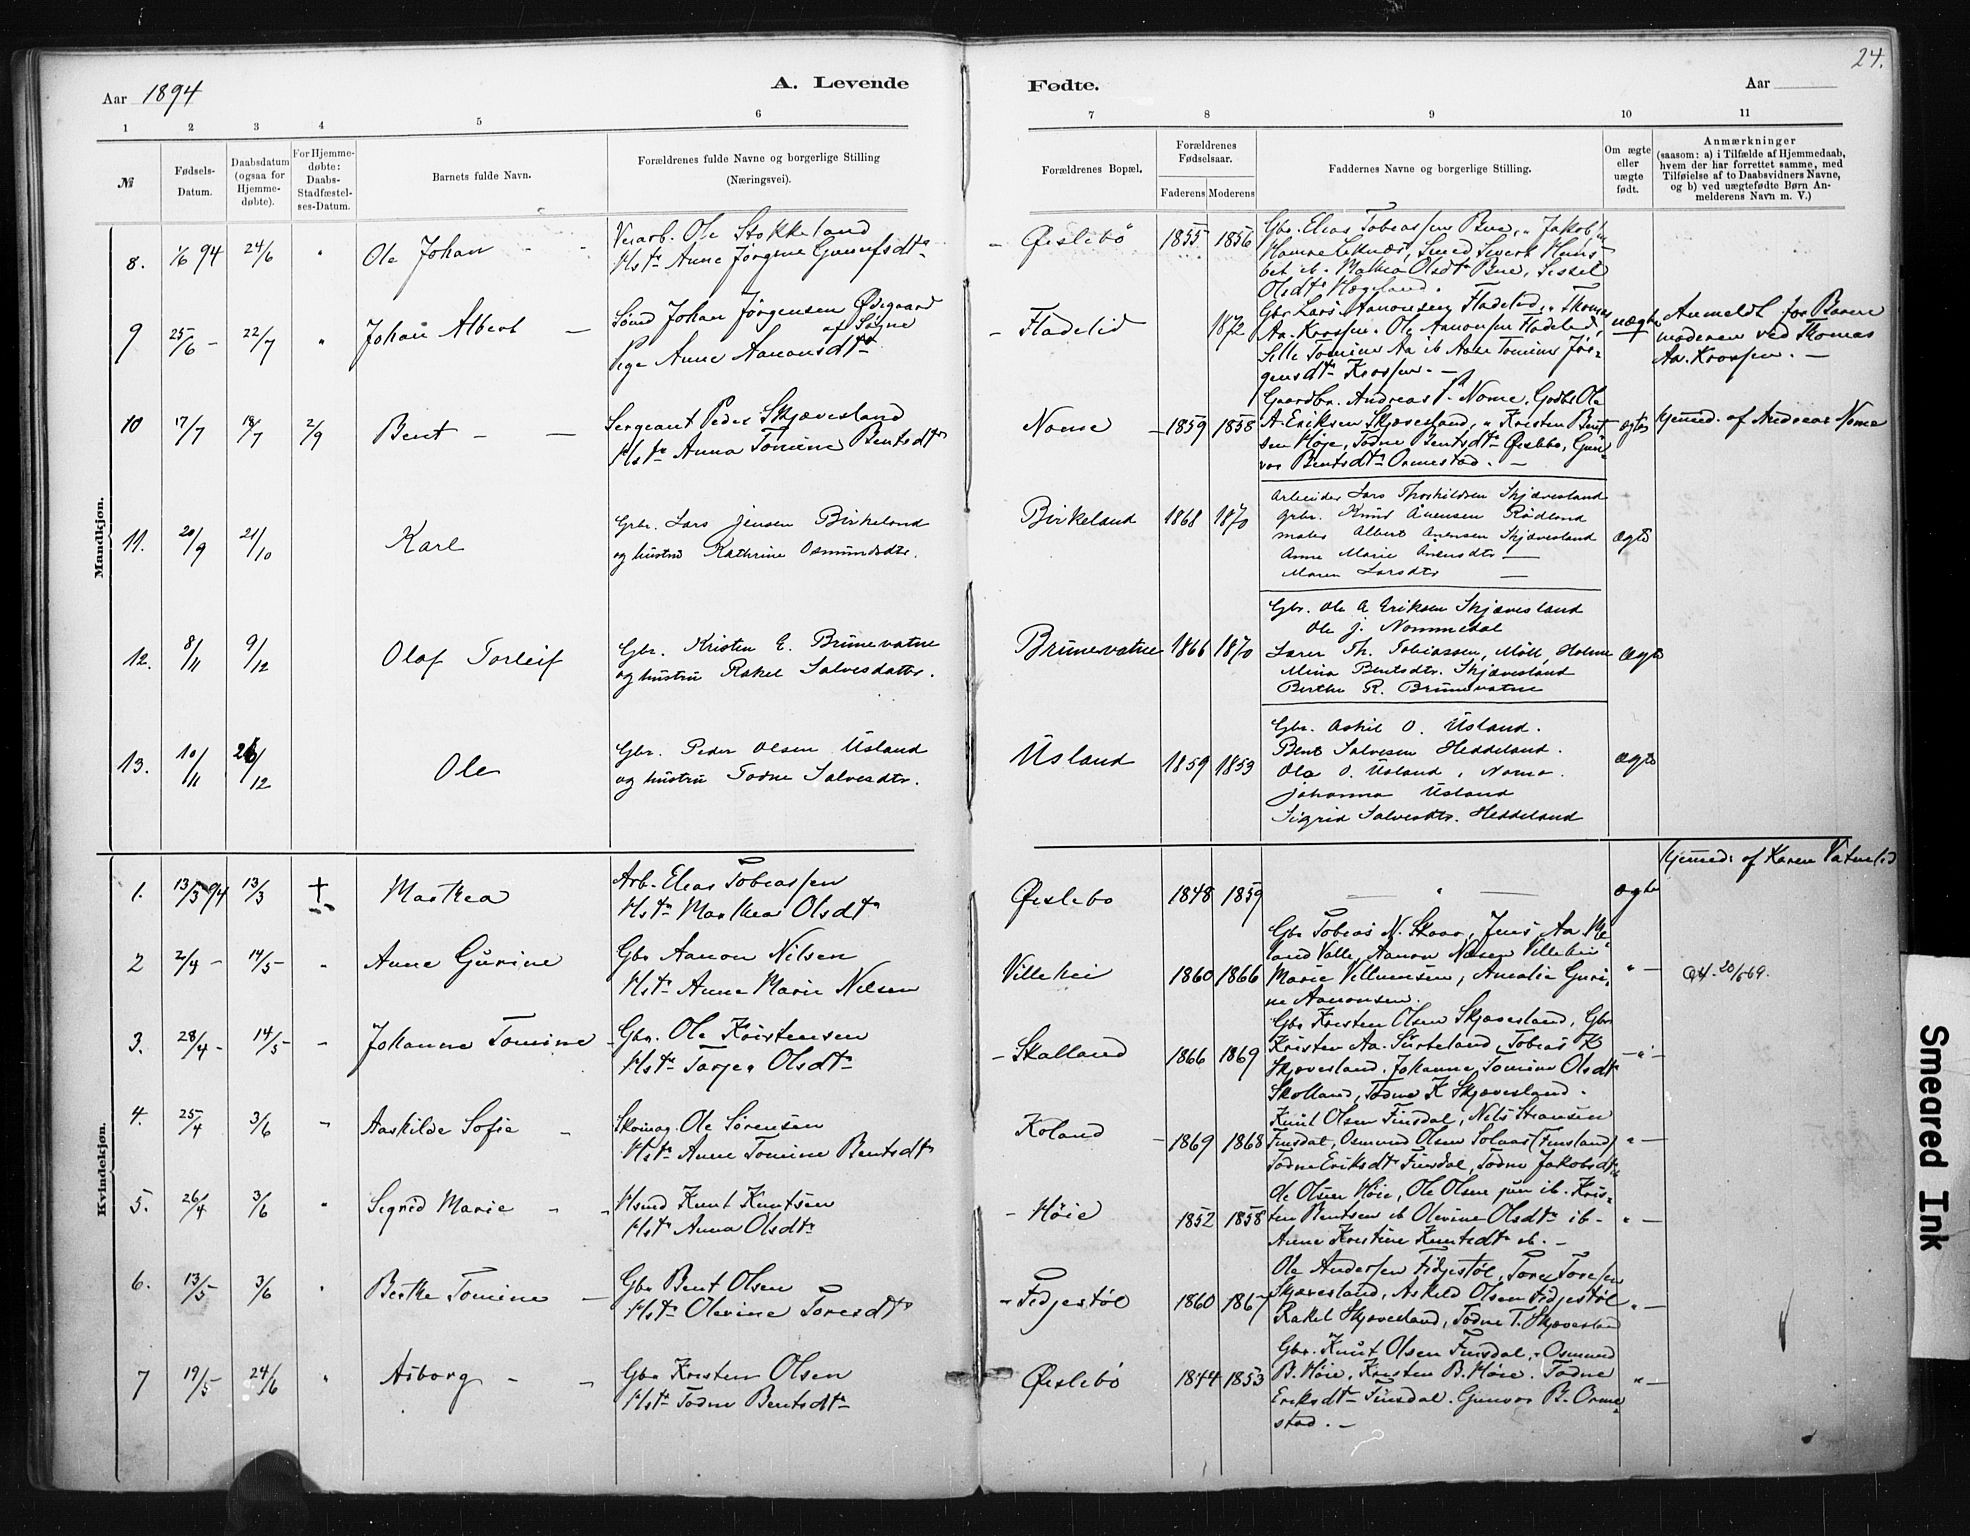 24.
Aar 1894
A. Levende
Fødte.
Aar
1 2 3 4 5 6 7 8 9 10 11
№
Fødsels-
Datum.
Daabsdatum
(ogsaa for
Hjemme-
døbte).
For Hjemme-
døbte:
Daabs-
Stadfæstel-
ses-Datum.
Barnets fulde Navn.
Forældrenes fulde Navne og borgerlige Stilling
(Næringsvei).
Forældrenes Bopæl.
Forældrenes
Fødselsaar.
Faderens Moderens
Faddernes Navne og borgerlige Stilling.
Om ægte
eller
uægte
født.
Anmærkninger
(saasom: a) i Tilfælde af Hjemmedaab,
hvem der har forrettet samme, med
Tilføielse af to Daabsvidners Navne,
og b) ved uægtefødte Børn An-
melderens Navn m. V.)
Mandkjøn.
8. 1/6 94 24/6 " Ole Johan
Ole Stokkeland
Hstr Anne Jørgine
Øislebø 1855 1856
Gbr. Elias Tobiassen Bue, " Jakob
Olsdtr Hægeland.
9 25/6 22/7 " Johan Albert
Johan Jørgensen Ødegaard
af Søgne
Pige Anne Aanonsdtr
Fladelid 1872
Gbr Lars Aanonsen Fladelid, " Thomas
Aa. Krossen. Ole Aanonsen Fladelid,
Tomine Aa ib Aase Tomine Jør-
gensdtr Krossen.
uægte
Anmeldt for Barne
moderen ved Thomas
Aa. Krossen.
10 17/7 18/7 2/9 Bent
Sergeant Peder Skjævesland
Hstr Anna Tomine Bentsdtr
Nome 1859 1858
Gaardbr. Andreas P. Nome, Godbr Ole
A. Eriksen Skjævesland, " Kristen Bent-
sen Høje, Todne Bentsdtr Øislebø, Gun-
vor Bentsdtr Ormestad.
ægte
hjemmed. af Andreas Nome
11. 20/9 21/10 Karl
Gbr. Lars Jensen Birkeland
og hustru Kathrine Osmundsdtr.
Birkeland 1868 1870
Arbeider Lars Thorkildsen Skjævesland
Gbr. Knud Anensen Rødland
Albert Anensen Skjævesland
Anne Marie Anensdtr
Maren Larsdtr
ægte
12. 8/11 9/12 Olaf Torleif
Gbr. Kristen E. Brunevatne
og hustru Rakel Salvesdatter.
Brunevatne 1866 1870
Gbr. Ole A Eriksen Skjævesland
Ole J. Nommedal
Lærer Th. Tobiassen, Möll, Holme
Mina Bentsdtr. Skjævesland
Berthe R. Brunevatne
ægte
13. 10/11 26/12 Ole
Gbr. Peder Olsen Usland
og hustru Todne Salvesdtr.
Usland 1859 1853
Gbr. Askil O. Usland.
Bent Salvesen Heddeland.
Ole O. Usland, Nome.
Johanna Usland
Sigrid Salvesdtr. Heddeland
ægte
Kvindekjøn.
1. 13/3 94 13/3 † Marthea
Arb. Elias Tobiassen
Hstr Marthea Olsdtr
Øislebø 1848 1859
"
ægte
hjemmed. af Karen Vatnelid
2 2/4 14/5 " Anne Gurine
Gbr Aanon Nilsen
Hstr Anne Marie Nilsen
Villehei 1860 1866
Gbr Tobias N. Skaar, Jens Aa Me-
land Valle, Aanon Nilsen Villehei
Marie Villumsen, Amalie Guri-
ne Aanonsen.
"
20/5 69.
3. 28/4 14/5 " Johanne Tomine
Gbr. Ole Kristensen
Hstr Tarjer Olsdtr
Skalland 1866 1869
Gbr Kristen Olsen Skjævesland, Gbr
Kristen Aa. Surteland, Tobias K
Skjævesland. Johanne Tomine Olsdtr
Skolland, Todne K Skjævesland.
"
4. 25/4 3/6 " Aaskilde Sofie
Skomag. Ole Sørensen
Hstr Anne Tomine Bentsdtr
Koland 1869 1868
Knut Olsen Finsdal, Nils Hansen
Finsdal, Osmund Olsen Solaas (Finsland)
Todne Eriksdtr Finsdal, Todne Jakobsdtr
"
5. 26/4 3/6 " Sigrid Marie
Hsmd Knut Knutsen
Hstr Anna Olsdtr
Høie 1852 1858
Ole Olsen Høie, Ole Olsen jun ib. Kris-
ten Bentsen ib Olevine Olsdtr ib.
Anne Kristine Knutsdtr ib.
"
6. 13/5 3/6 " Berthe Tomine
Gbr Bent Olsen
Hstr Olevine Toresdtr
Fidjestøl 1860 1867
Ole Andersen Fidjestøl, Tore Toresen
Skjævesland, Askild Olsen Fidjestøl
Rakel Skjævesland, Todne T. Skjævesland
"
7 19/5 24/6 " Asborg
Gbr Kristen Olsen
Hstr Todne Bentsdtr
Øislebø 1844 1853
Gbr. Knut Olsen Finsdal, " Osmund
B. Høie, Kristen B. Høie. Todne
Eriksdtr Finsdal. Gunvor B. Orme-
stad.
"
Smeared Ink